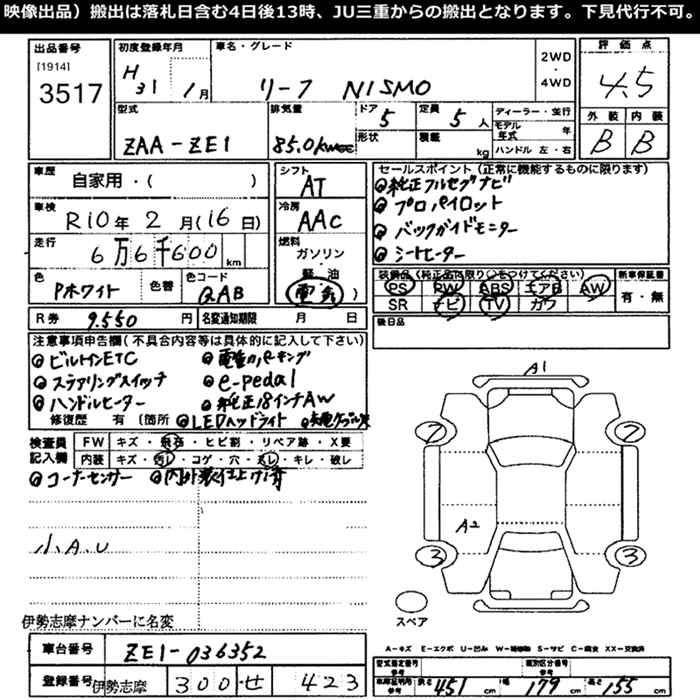 映像出品）搬出は落札日含む4日後13時、JU三重からの搬出となります。下見代行不可。
出品番号
[1914]
3517
初度登録年月
H31 1月
車名・グレード
リーフ NISMO
2WD・4WD
評価点
4.5
外装 内装
B B
型式
ZAA-ZE1
排気量
85.0kw
ドア 5
形状
定員 5人
積載 kg
ディーラー・並行
モデル年式 年
ハンドル 左・右
車歴
自家用・( )
シフト
AT
車検
R10年2月(16日)
冷房
AAC
走行
6万6千600km
燃料
ガソリン
軽油
電気
色
Pホワイト
色替
色コード
QAB
R券 9.550円
名変通知期限 月 日
セールスポイント (正常に機能するものに限ります)
純正フルセグナビ
プロパイロット
バックガイドモニター
シートヒーター
装備品(純正品に限り○をつけてください)
PS PW ABS エアB AW
SR ナビ TV カワ
新車保証書
有・無
後日品
注意事項申告欄(不具合内容等は具体的に記入して下さい)
ビルトインETC
電動パーキング
ステアリングスイッチ
e-pedal
ハンドルヒーター
純正18インチAW
修復歴 有(箇所
LEDヘッドライト
検査員記入欄
FW キズ・飛石・ヒビ割・リペア跡・X要
内装 キズ・汚レ・コゲ・穴・スレ・キレ・破レ
コーナーセンサー
内外装仕上げ済
小A.U
伊勢志摩ナンバーに名変
車台番号
ZE1-036352
登録番号
伊勢志摩 300 せ 423
A1
7 7
A2
3 3
スペア
A-キズ E-エクボ U-凹み W-補修跡 S-サビ C-腐食 XX-交換済
型式指定番号 参考
類別区分番号 参考
車庫証明用 参考
長さ 451cm 幅 179cm 高さ 155cm